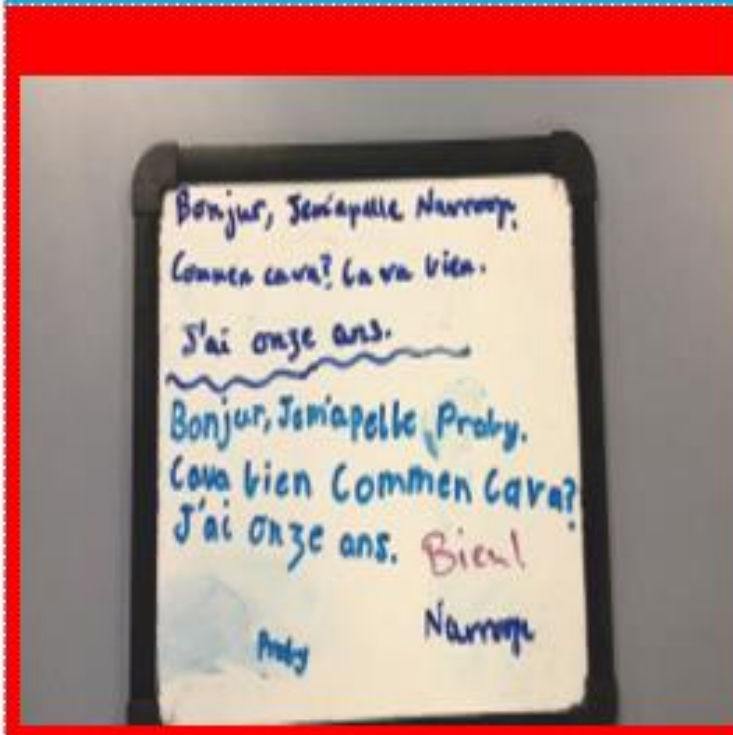 Bonjur, Jem'apelle
Commen cava? Cava bien.
J'ai onze ans.
Bonjur, Jem'apelle Proby.
Cava bien Commen Cava?
J'ai onze ans. Bien!
Proby